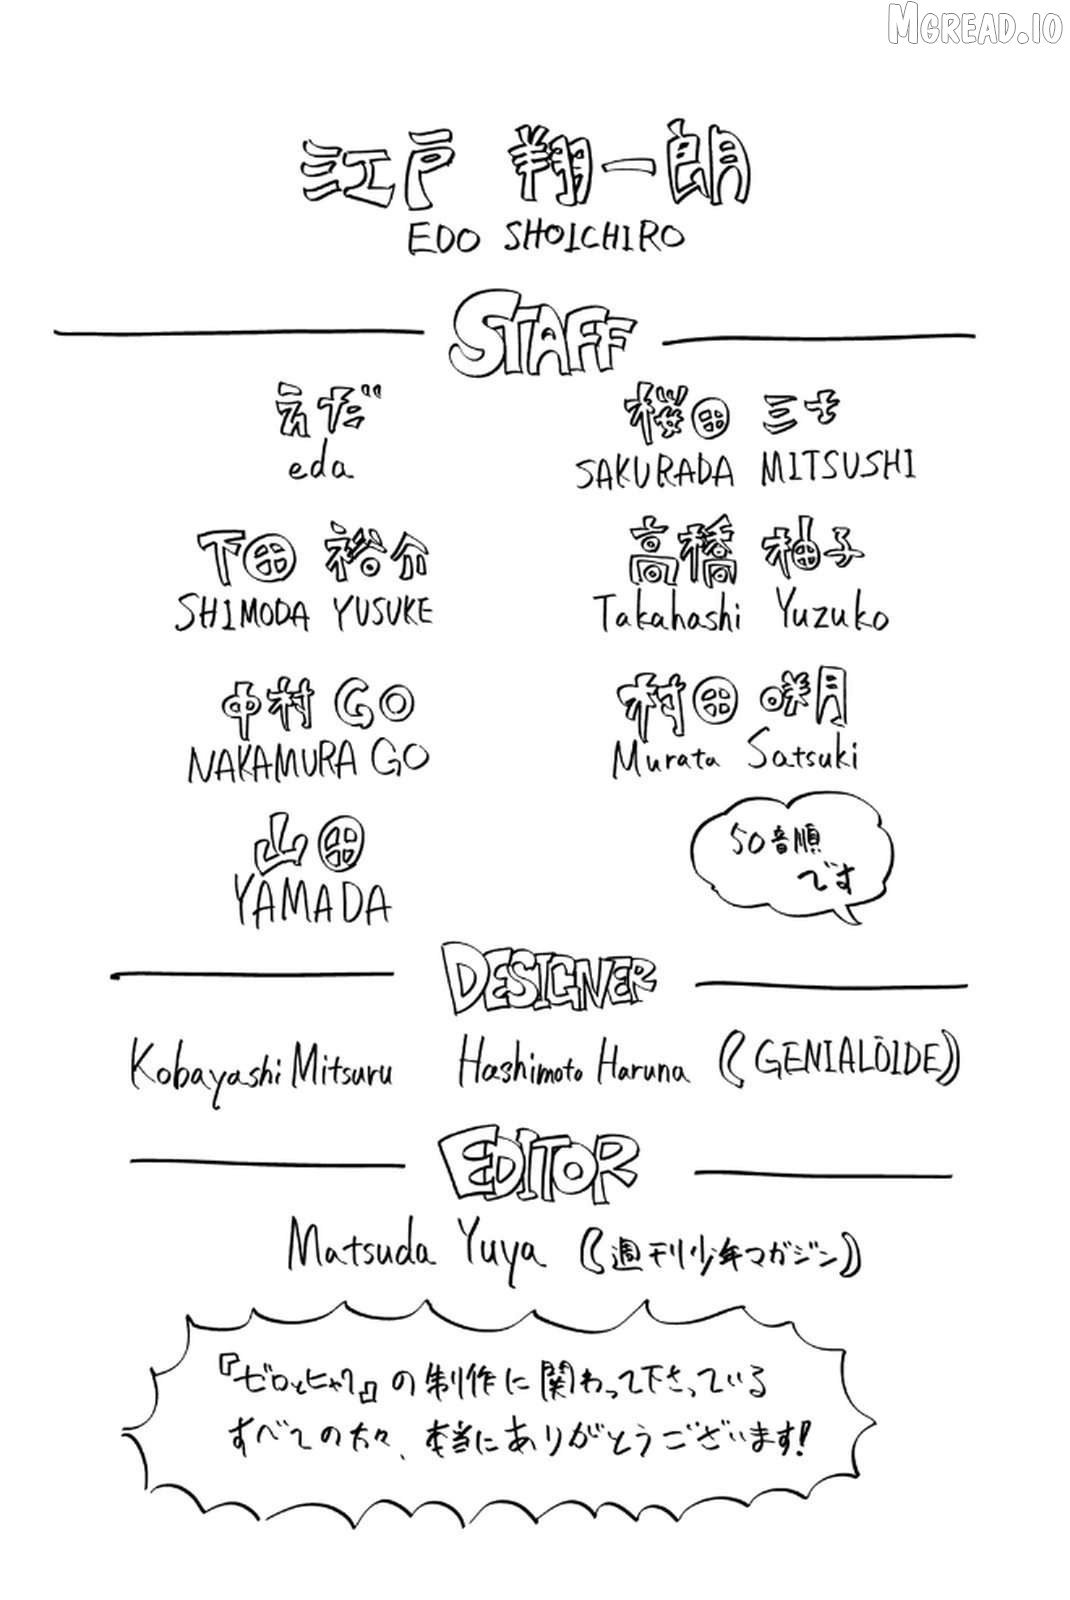 MGREAD.IO
江戸 翔一朗
EDO SHOICHIRO
STAFF
えだ
eda
桜田 三士
SAKURADA MITSUSHI
下田 裕介
SHIMODA YUSUKE
高橋 柚子
Takahashi Yuzuko
中村 GO
NAKAMURA GO
村田 咲月
Murata Satsuki
山田
YAMADA
50音順
です
DESIGNER
Kobayashi Mitsuru Hashimoto Haruna (GENIALÒIDE)
EDITOR
Matsuda Yuya (週刊少年マガジン)
『ゼロとヒャク』の制作に関わって下さっている
すべての方々、本当にありがとうございます!